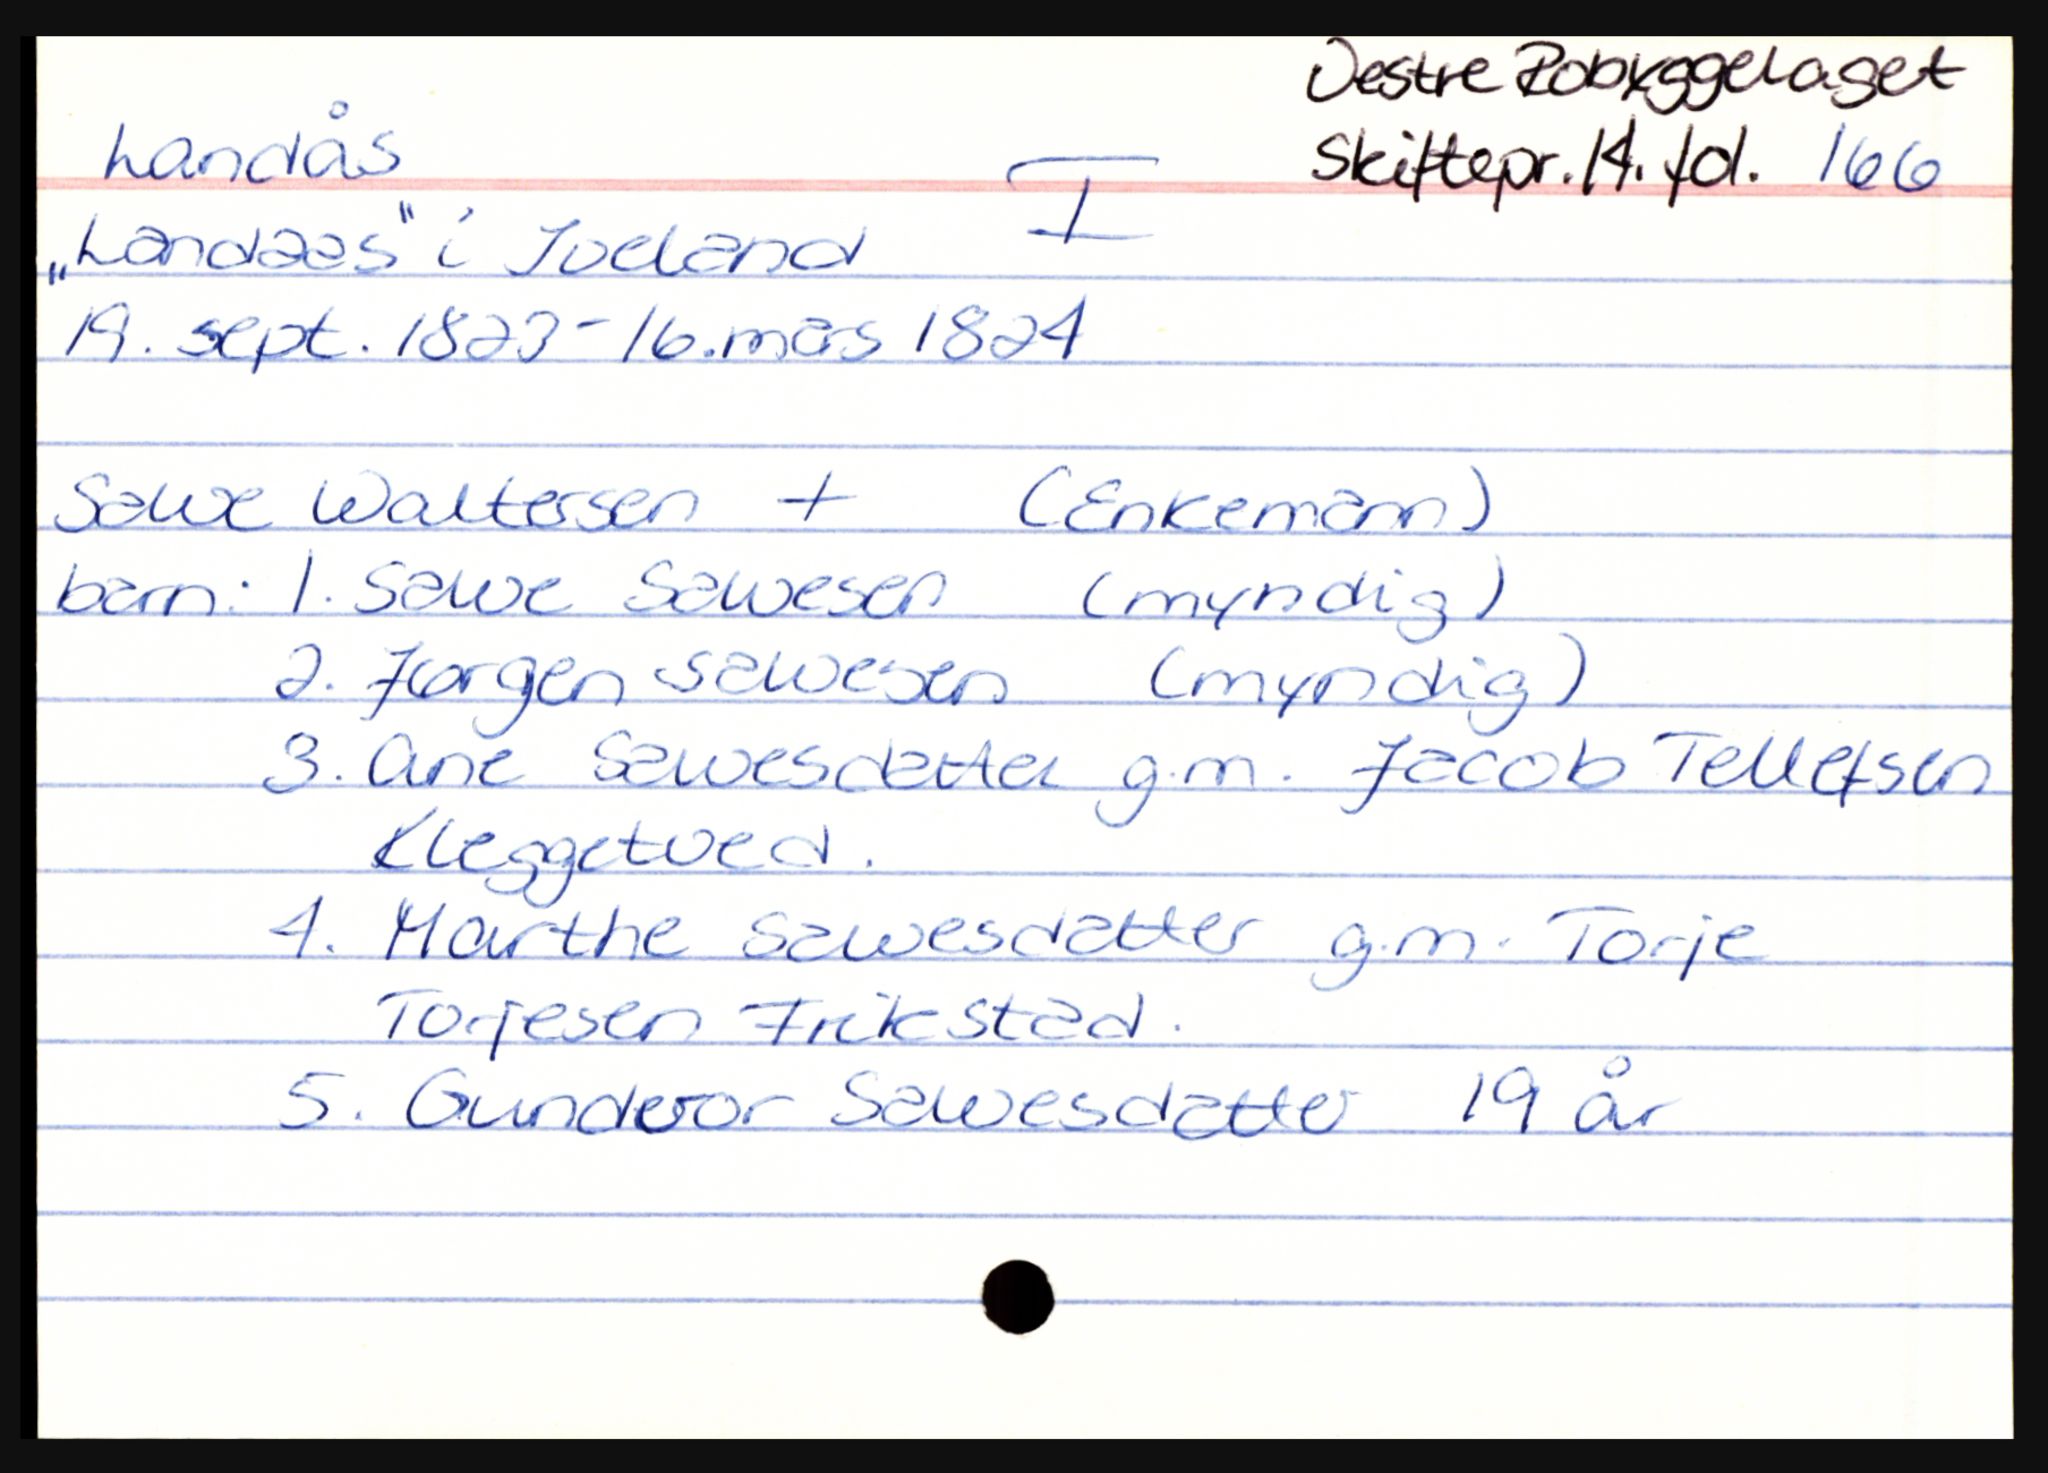 Vestre Robyggelaget
Skiftepr. 14. fol. 166
Landås
I
„Landaas" i Iveland
19. sept. 1823 - 16. mars 1824
Salve Waltersen + (Enkemann)
barn: 1. Salve Salvesen (myndig)
2. Jørgen Salvesen (myndig)
3. Ane Salvesdatter g.m. Jacob Tellefsen
Kleggetved.
4. Marthe Salvesdatter g.m. Torje
Torjesen Frikstad.
5. Gundvor Salvesdatter 19 år